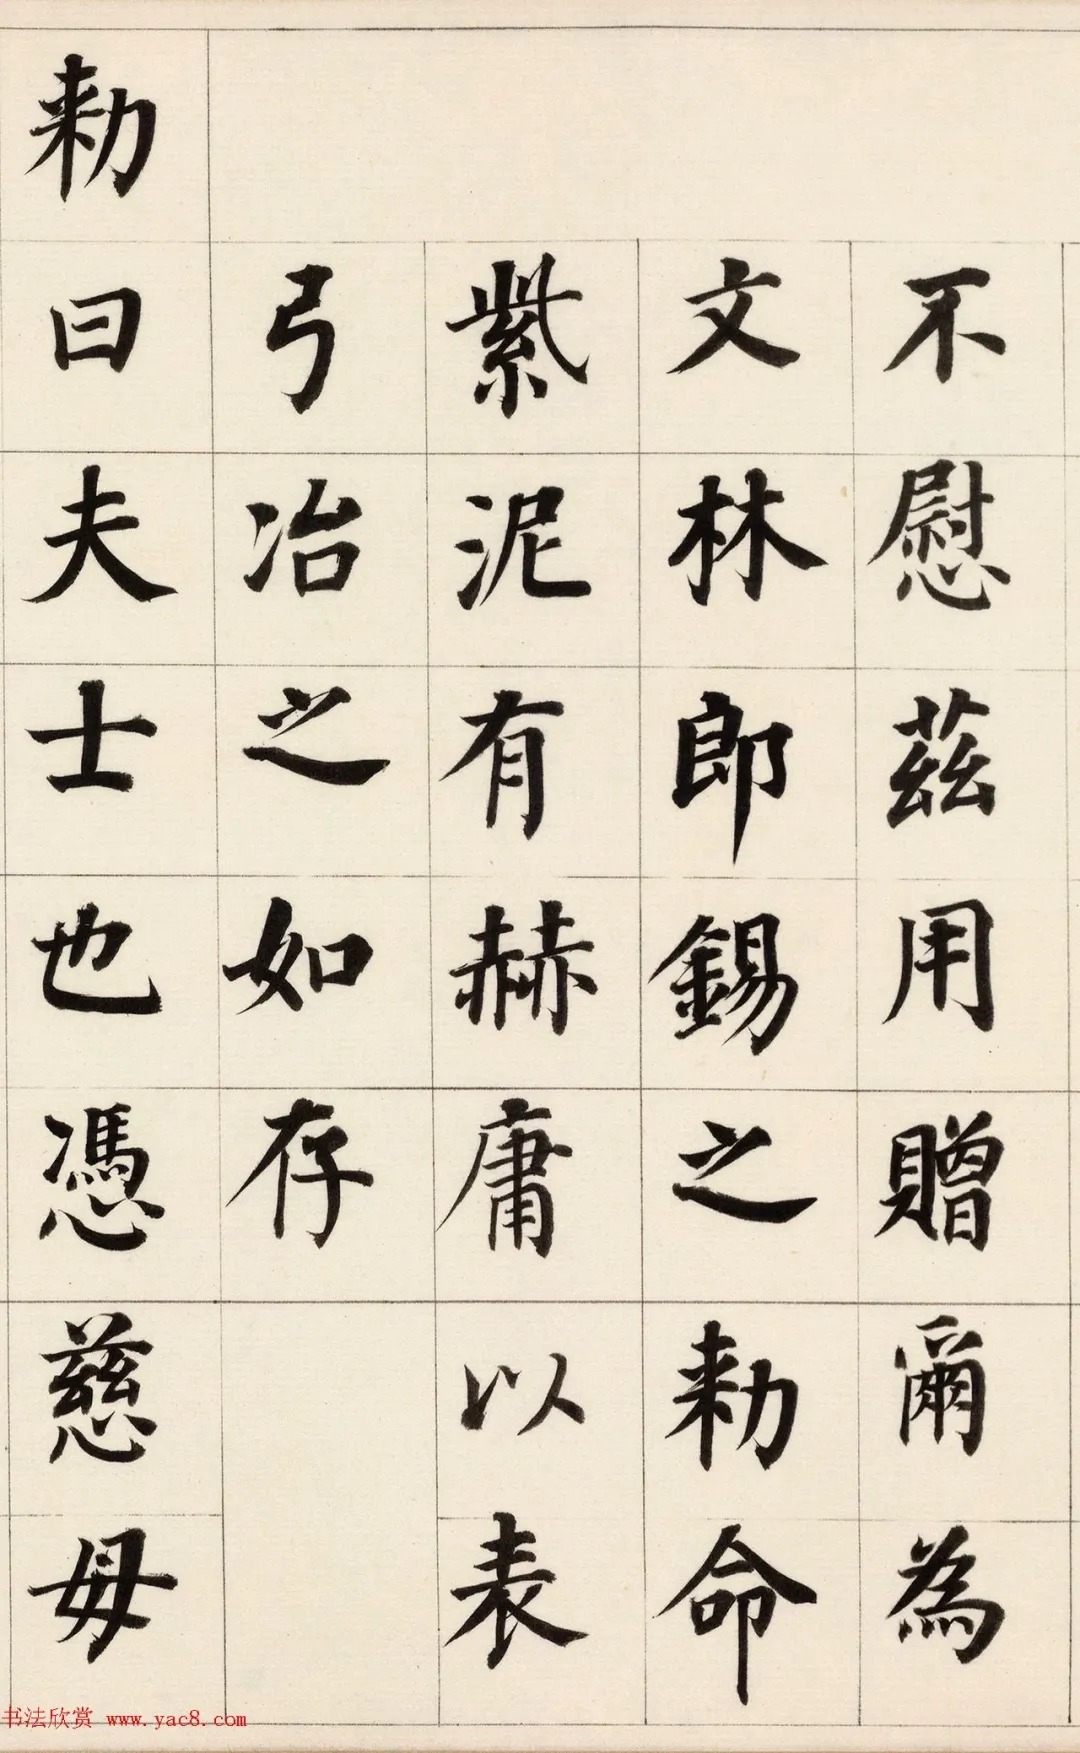 不慰茲用贈爾為
文林郎錫之勑命
紫泥有赫庸以表
弓冶之如存
勑曰夫士也憑慈母
书法欣赏 www.yac8.com